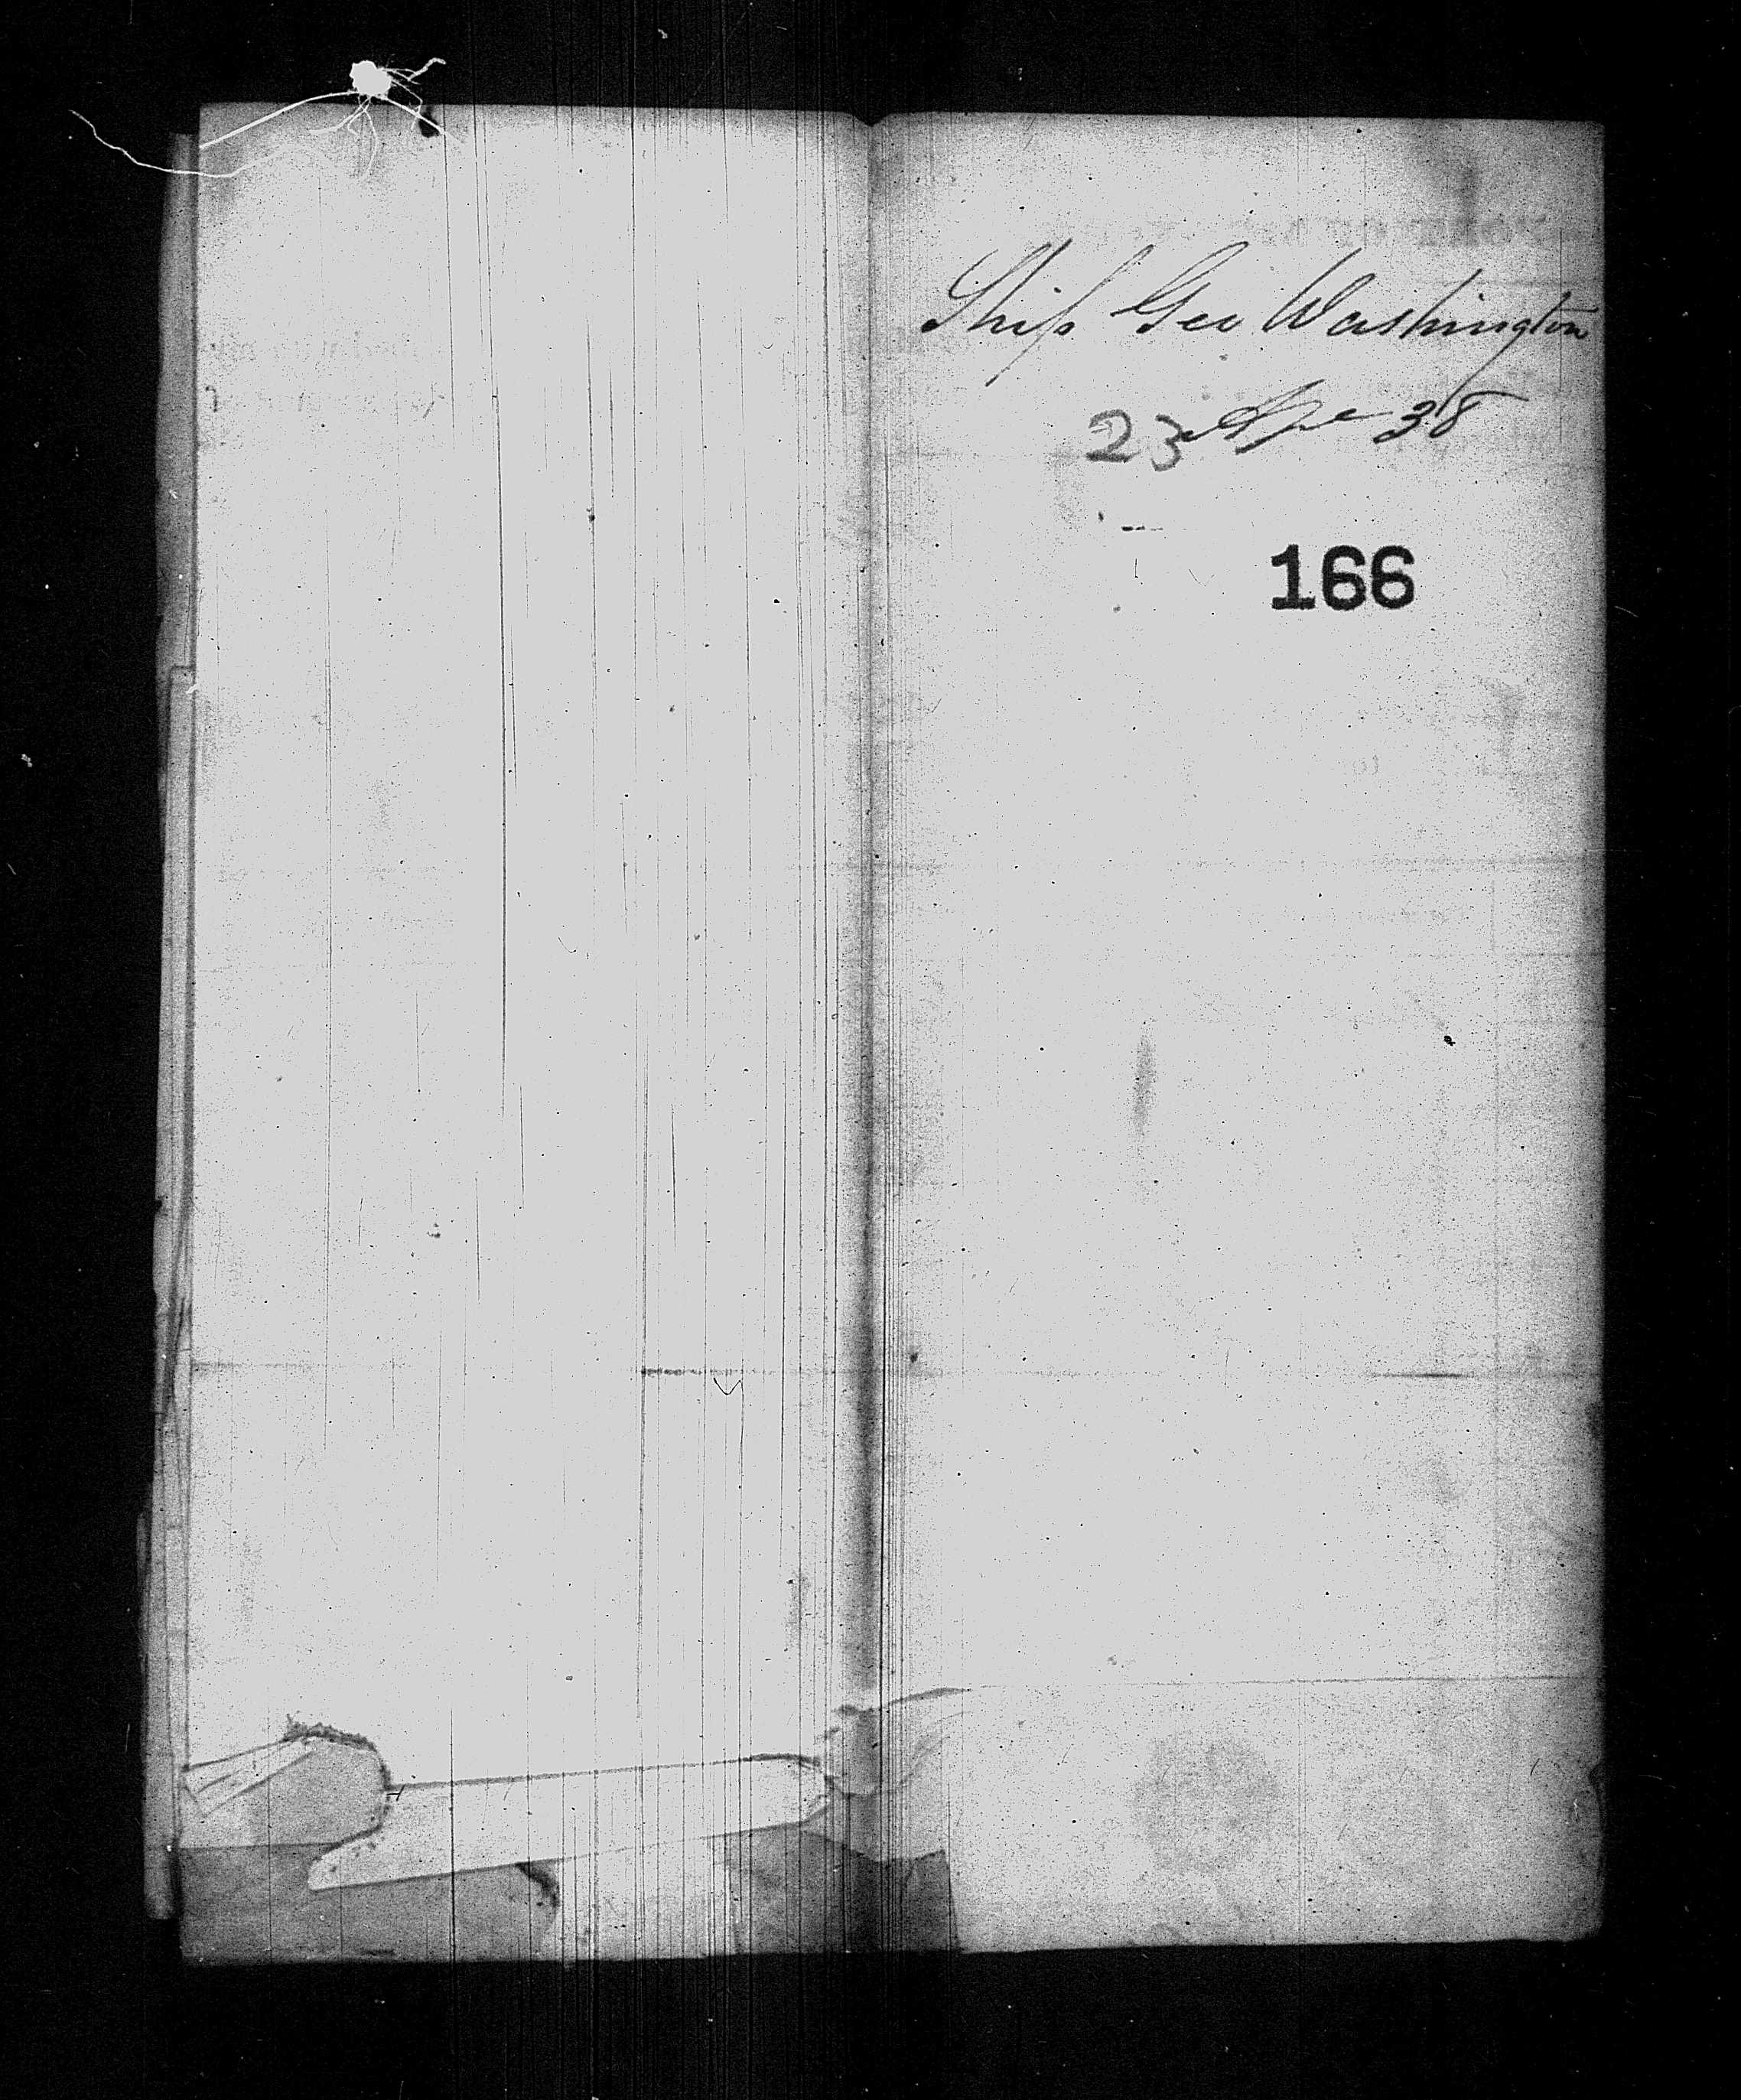 Ship Geo Washington
23 Apr 38
166